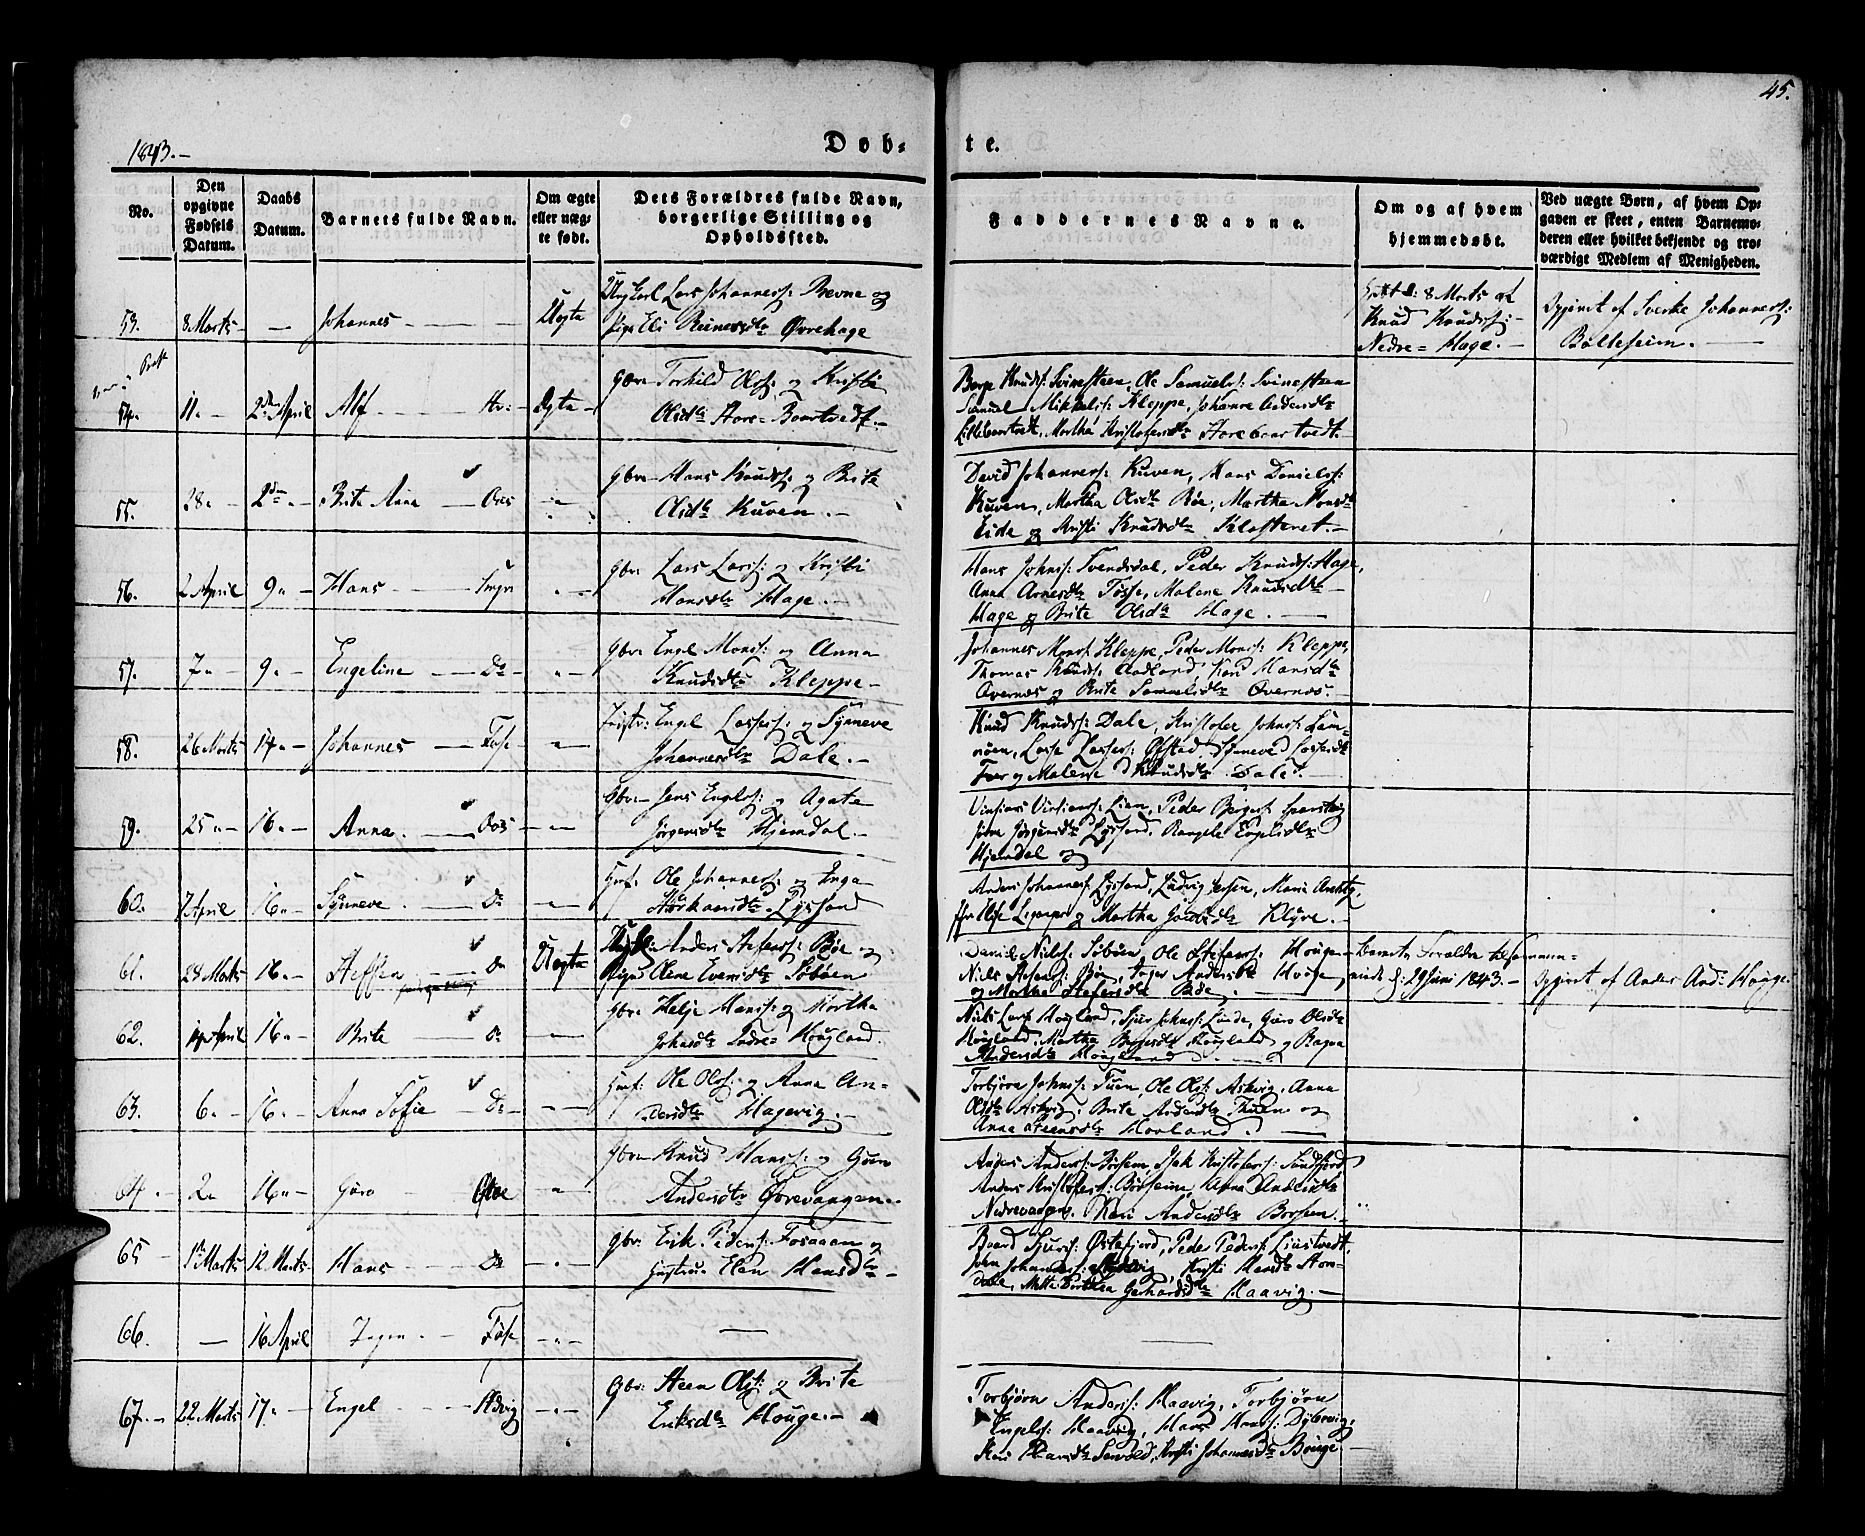 45.
1843.-
Døb-
te.
No.
Den opgivne Fødsels Datum.
Daabs Datum.
Barnets fulde Navn.
Om ægte eller uægte født.
Dets Forældres fulde Navn, borgerlige Stilling og Opholdssted.
Faddernes Navne.
Om og af hvem hjemmedøbt.
Ved uægte Børn, af hvem Opgaven er skeet, enten Barnemoderen eller hvilket bekjendt og troværdigt Medlem af Menigheden.
53. 8 Marts - — Johannes — Uægta Ungkarl Lars Johanness: Revne og
Pige Eli Reinersdtr Øvrehage
8 Marts af
Knud Knudss: -
Nedre = Hage. -
Opgivet af Sverke Johanness:
Bolleseim. —
54. 11.- 2den April Alf - Ægta - Gbr: Torkild Olss: og Kristi
Olsdtr Store = Baartvedt. -
Børge Knuds: Svinesteen, Ole Samuels: Svinesteen
Samuel Mikkels: Kleppe, Johanne Andersdtr
Lillebaartvedt, Martha Kristofersdtr Storebaartvedt. -
55. 28.- 2den - Brite Anna — Oos - " - Gbr: Hans Knuds: og Brite
Olsdtr Kuven. -
David Johanness: Kuven, Hans Daniels:
Kuven, Martha Olsdtr Bøe, Martha Monsdtr
Eide og Kristi Knudsdtr Klosteret. -
56. 2 April 9.- Hans - " - Gbr: Lars Larss: og Kristi
Hansdtr Hage. -
Hans Johns: Svendsdal, Peder Knuds: Hage,
Anna Arnesdtr Tøsse, Malene Knudsdtr
Hage og Brite Olsdtr Hage. -
57. 7.- 9.- Engeline — Do - " - Gbr: Engel Monss: og Anna
Knudsdtr Kleppe -
Johannes Mons: Kleppe, Peder Mons: Kleppe,
Thomas Knuds: Aadland, Kari Hansdtr
Øvernæs og Brite Samuelsdtr Øvernæs. -
58. 26 Marts 14.- Johannes — Fuse - " - Engel Lasses: og Synneve
Johannesdtr Dale. -
Knud Knuds: Dale, Kristofer Johns:
Lasse Lasses: Øfstad, Synneve Lassesdtr
og Malene Knudsdtr Dale. -
59. 25.- 16.- Anna. — Oos - " - Gbr: Jens Engels: og Agate
Jørgensdtr Hjemdal. -
Vinsians Vinsians: Lien, Peder
Jørgensdtr Lysfond, Rangele Engelsdtr
Hjemdal og
60. 7 April 16.- Synneve. — Do - " - Husf: Ole Johanness: og Inga
Haakonsdtr Lysfond
Anders Johanness: Lysfond, Ludvig Jessen, Maria
og Martha Klyve. -
61. 24 Marts 16.- Steffen — Do - Uægta Anders Stefens: Bøe og
Pige Olene Evensdtr Søbøen
Daniel Nils: Søbøen Ole Stefens: Hougen
Niels Stefens: Bøe, Inger Andersdtr
og Martha Stefensdtr Bøe.
Barnets Forældre
29 Juni 1843. -
Opgivet af Anders And: Houge.
62. 14 April 16.- Brite — Do - " - Gbr: Helje Hanss: og Martha
Johnsdtr Indre = Hougland.
Niels Lars: Hougland, Sjur Johns: Linde, Guro Olsdtr
Hougland, Martha Hougland og Ragna
Andersdtr Hougland.
63. 6.- 16.- Anna Sofie — Do - " - Husf: Ole Olss: og Anna An-
dersdtr Hagevig. -
Torbjørn Johns: Tuen, Ole Ols: Askvig, Anna
Olsdtr Askvig, Brite Andersdtr Thuen og
Anna Steensdtr Hovland. —
64. - 2.- 16.- Guro — Gbr: Knud Hanss: og Guru
Andersdtr Øvrevangen. -
Anders Anders: Børsem, Isak Kristofers:
Anders Kristofers: Børseim, Anna Andersdtr
Nedrevangen, Mari Andersdtr Børsem. -
65 - 1ste Marts 12 Marts - Hans — Do - " - Gbr: Erik Peders: Fosaaen og
Hustru Elen Hansdtr -
Baard Sjurs: Østefjord, Peder Peders: Linstvedt,
Johannes: Kristi Hansdtr Stor-
dale, Gerhardsdtr Haavig. -
66. — 16 April Ingen. - Fuse - " - —
67. - 22 Marts 17.- Engel — - " - Gbr: Steen Ols: og Brite
Eriksdtr Houge. -
Torbjørn Anderss: Haavig, Torbjørn
Engels: Haavig, Hans Hans: Dybevig,
Sævold, Kristi Johannesdtr Bønge